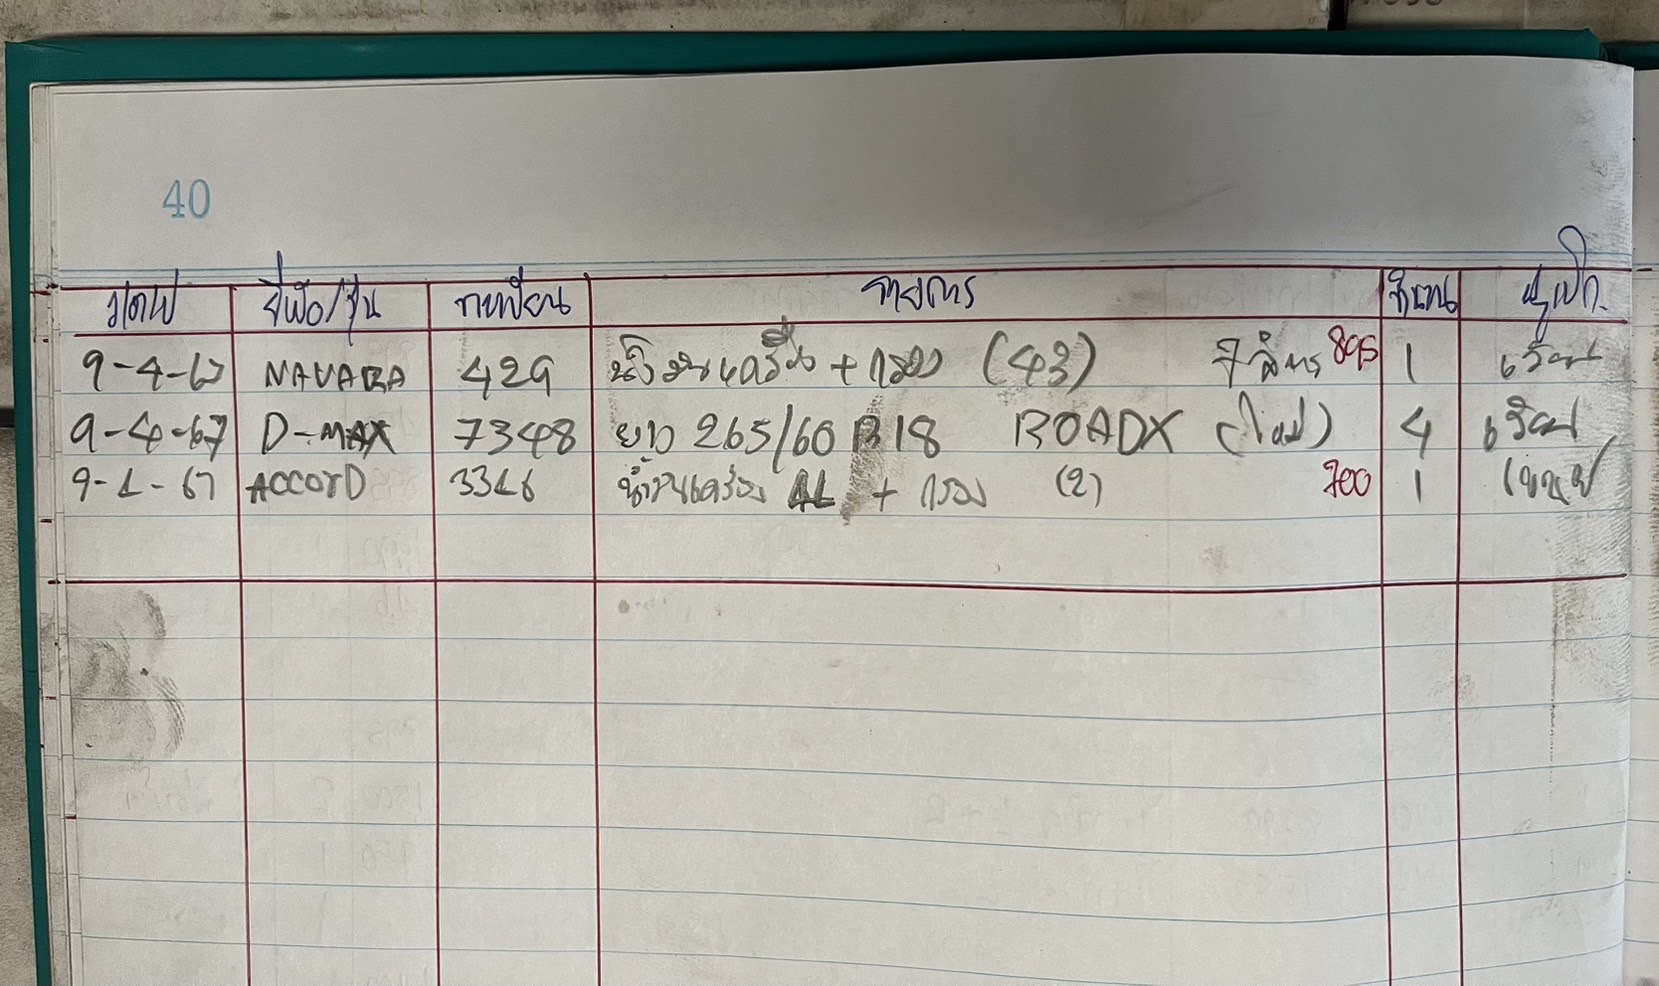 40
ว/ด/ป ยี่ห้อ/รุ่น ทะเบียน รายการ จำนวน ผู้เบิก
9-4-67 NAVARA 429 น้ำมันเครื่อง + กรอง (43) 7 ลิตร 895 1
9-4-67 D-MAX 7348 ยาง 265/60 R 18 ROADX (ใหม่) 4
9-4-67 ACCORD 3346 น้ำมันเครื่อง + กรอง (2) 700 1